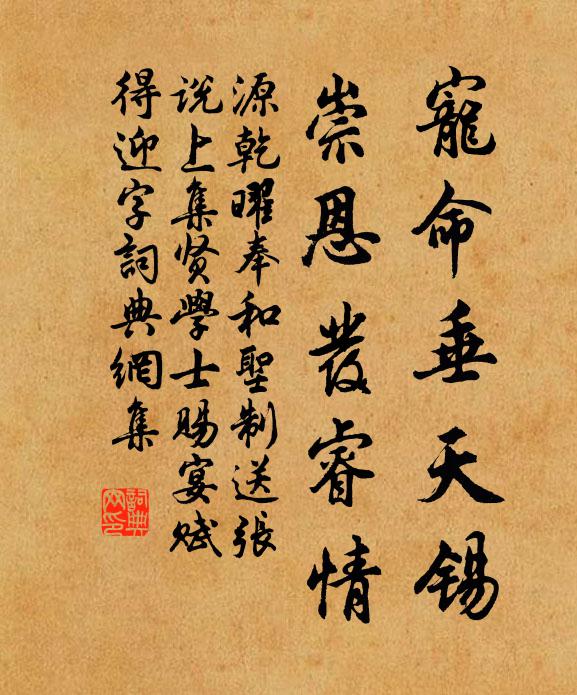 寵命垂天錫
崇恩發睿情
源乾曜奉和聖制送張
説上集贤學士賜宴賦
得迎字詞典網集
詞典
网印